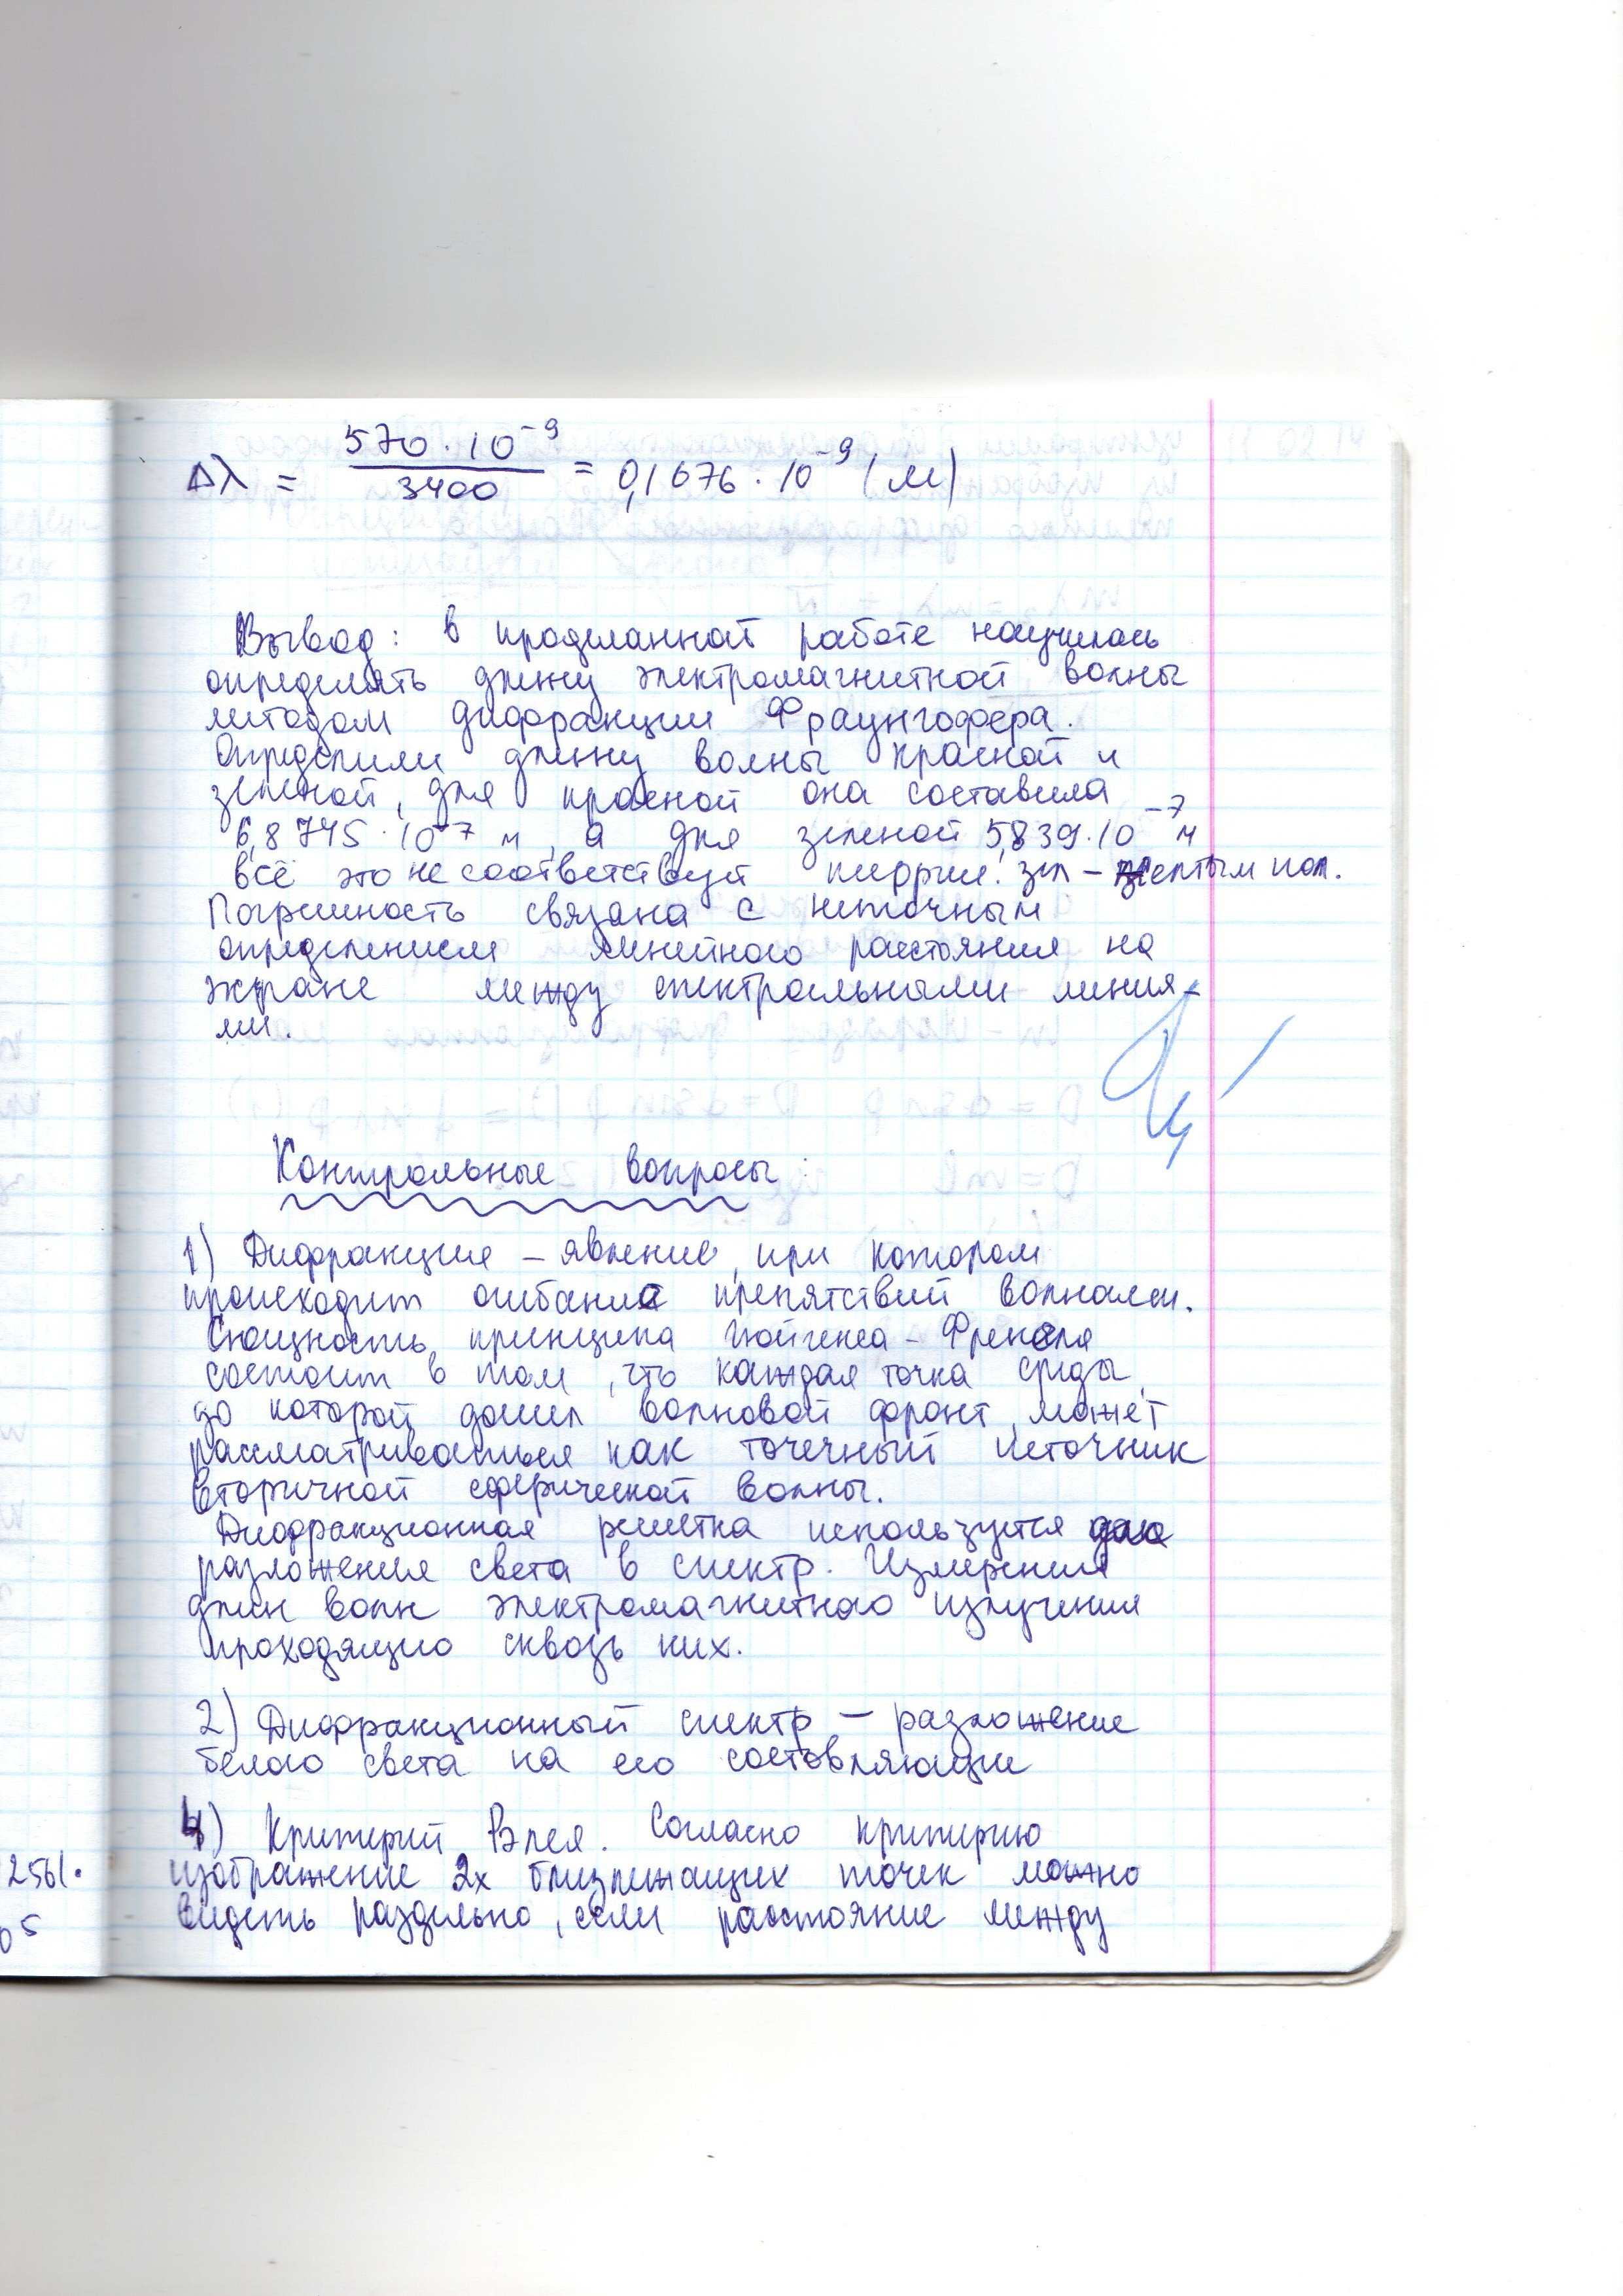 Δλ = 570 · 10⁻⁹ / 3400 = 0,1676 · 10⁻⁹ (м)
Вывод: в проделанной работе научилась
определять длину электромагнитной волны
методом дифракции Фраунгофера.
Определили длину волны красной и
зеленой, для красной она составила
6,8745 · 10⁻⁷ м, а для зеленой 5,839 · 10⁻⁷ м
всё это не соответствует зел – желтым
Погрешность связана с неточным
определением линейного расстояния на
экране между спектральными линия-
ми.
Контрольные вопросы:
1) Дифракция – явление, при котором
происходит огибание препятствий волнами.
Сющность принципа Гюйгенса – Френеля
состоит в том, что каждая точка среды,
до которой дошел волновой фронт, может
рассматриваться как точечный источник
вторичной сферической волны.
Дифракционная решетка используется для
разложения света в спектр. Измерения
длин волн электромагнитного излучения
проходящию сквозь них.
2) Дифракционный спектр – разложение
белого света на его состовляющие
4) Критерий Рэлея. Согласно критерию
изображение 2х близлежащих точек можно
видеть раздельно, если расстояние между
2561.
05